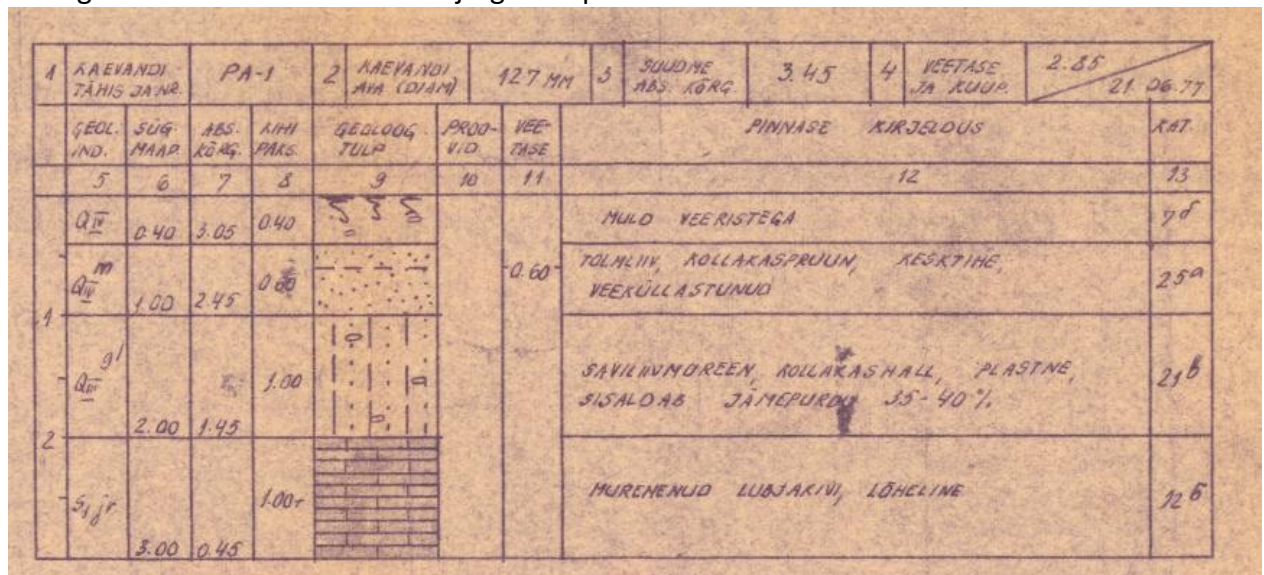 1 KAEVANDI TÄHIS JA NR. PA-1 2 KAEVANDI AVA (DIAM) 127 MM 3 SUUDME ABS. KÕRG. 3.45 4 VEETASE JA KUUP. 2.85 21.06.77
GEOL. IND. SÜG. MAAP. ABS. KÕRG. KIHI PAKS. GEOLOOG. TULP PROO-VID. VEE-TASE PINNASE KIRJELDUS KAT.
5 6 7 8 9 10 11 12 13
QIV 0.40 3.05 0.40 MULD VEERISTEGA
QIV m 1.00 2.45 0.60 0.60 TOLMLIIV, KOLLAKASPRUUN, KESKTIHE,
VEEKÜLLASTUNUD 25a
1
QIII gl 2.00 1.45 1.00 SAVILIIVMOREEN, KOLLAKASHALL, PLASTNE,
SISALDAB JÄMEPURDU 35-40% 21b
2
S1 jr 3.00 0.45 1.00+ MURENENUD LUBJAKIVI, LÕHELINE